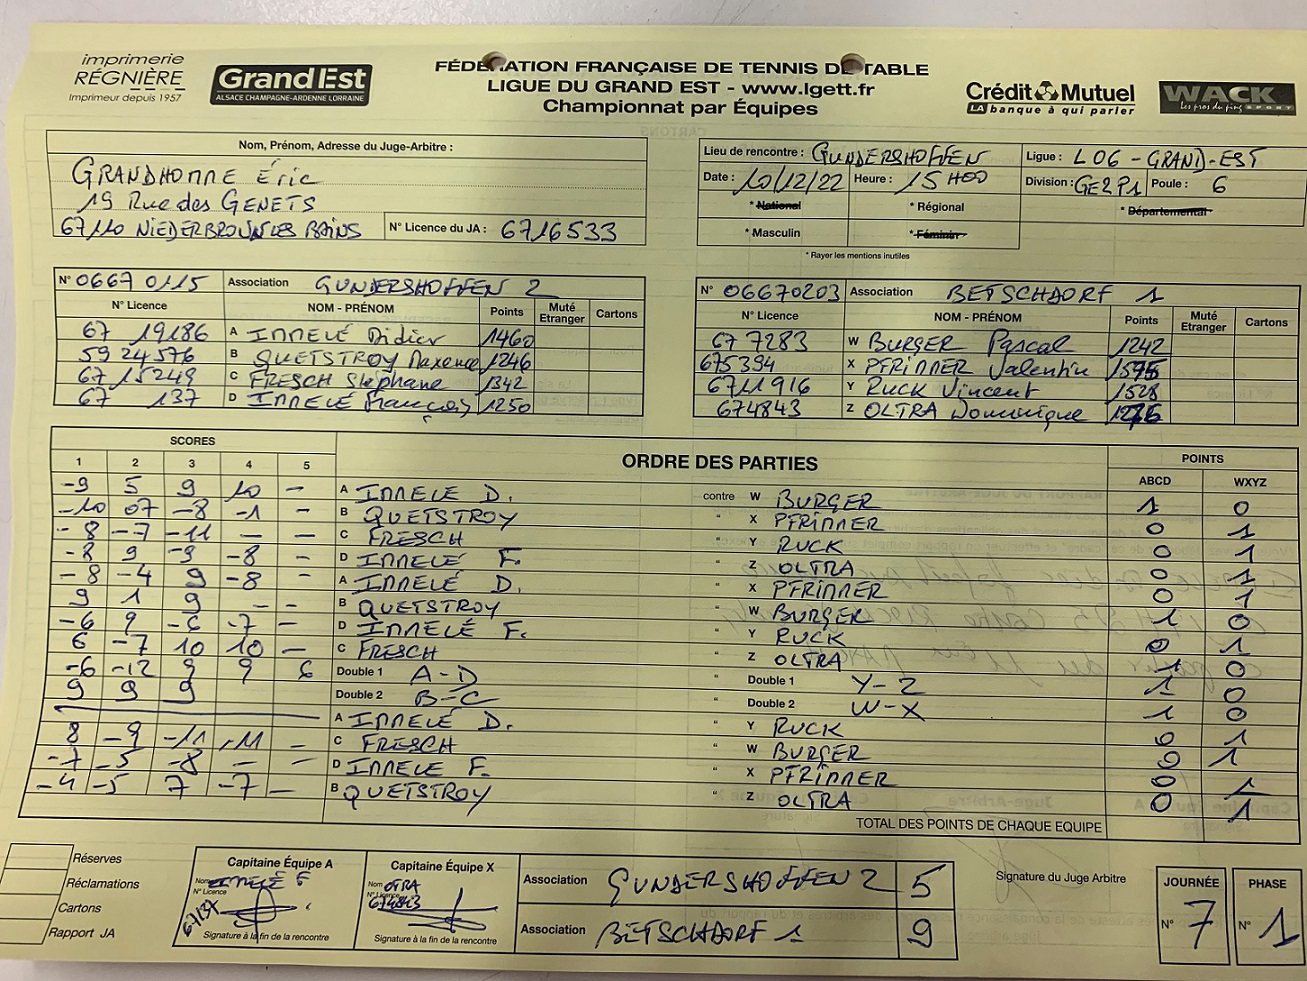 imprimerie
RÉGNIÈRE
Imprimeur depuis 1957
Grand Est
ALSACE CHAMPAGNE-ARDENNE LORRAINE
FÉDÉRATION FRANÇAISE DE TENNIS DE TABLE
LIGUE DU GRAND EST - www.lgett.fr
Championnat par Équipes
Crédit Mutuel
LA banque à qui parler
WACK
Les pros du ping SPORT
Nom, Prénom, Adresse du Juge-Arbitre :
GRANDHOMME Éric
19 Rue des GENETS
67110 NIEDERBRONN LES BAINS
N° Licence du JA : 6716533
Lieu de rencontre : GUNDERSHOFFEN
Ligue : L06 - GRAND-EST
Date : 10/12/22 Heure : 15H00
Division : GE2P1 Poule : 6
* National * Régional * Départemental
* Masculin * Féminin
* Rayer les mentions inutiles
N° 06670115 Association GUNDERSHOFFEN 2
N° Licence NOM - PRÉNOM Points Muté Etranger Cartons
67 19186 A IMMELÉ Didier 1460
59 24576 B QUETSTROY Maxence 1246
67 15249 C FRESCH Stéphane 1342
67 137 D IMMELÉ François 1250
N° 06670203 Association BETSCHDORF 1
N° Licence NOM - PRÉNOM Points Muté Etranger Cartons
67 7283 W BURGER Pascal 1242
675394 X PFRIMMER Valentin
6711916 Y RUCK Vincent 1528
674843 Z OLTRA Dominique
SCORES ORDRE DES PARTIES POINTS
1 2 3 4 5 ABCD WXYZ
-9 5 9 10 - A IMMELÉ D. contre W BURGER 1 0
-10 07 -8 -1 - B QUETSTROY " X PFRIMMER 0 1
-8 -7 -11 - - C FRESCH " Y RUCK 0 1
-8 9 -9 -8 - D IMMELÉ F. " Z OLTRA 0 1
-8 -4 9 -8 - A IMMELÉ D. " X PFRIMMER 0 1
9 1 9 - - B QUETSTROY " W BURGER 1 0
-6 9 -6 -7 - D IMMELÉ F. " Y RUCK 0 1
6 -7 10 10 - C FRESCH " Z OLTRA 1 0
-6 -12 9 9 6 Double 1 A-D " Double 1 Y-Z 1 0
9 9 9 Double 2 B-C " Double 2 W-X 1 0
A IMMELÉ D. " Y RUCK 0 1
8 -9 -11 -11 - C FRESCH " W BURGER 0 1
-7 -5 -8 - - D IMMELÉ F. " X PFRIMMER 0 1
-4 -5 7 -7 - B QUETSTROY " Z OLTRA 0 1
TOTAL DES POINTS DE CHAQUE EQUIPE
Réserves
Réclamations
Cartons
Rapport JA
Capitaine Équipe A
Nom IMMELÉ F
N° Licence
67137
Signature à la fin de la rencontre
Capitaine Équipe X
Nom OLTRA
N° Licence
674843
Signature à la fin de la rencontre
Association GUNDERSHOFFEN 2 5
Association BETSCHDORF 1 9
Signature du Juge Arbitre
JOURNÉE
N° 7
PHASE
N° 1